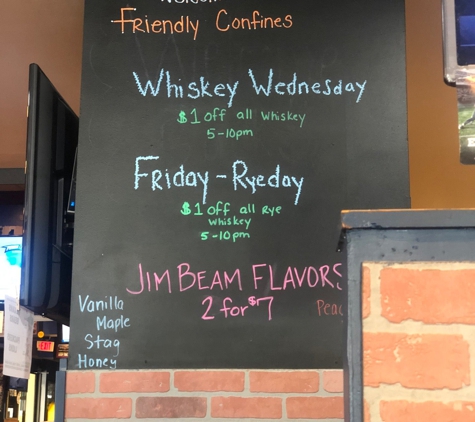 Friendly Confines
Whiskey Wednesday
$1 off all Whiskey
5-10pm
Friday-Ryeday
$1 off all Rye
Whiskey
5-10pm
JIM BEAM FLAVORS
2 for $7
Vanilla
Maple
Stag
Honey
EXIT